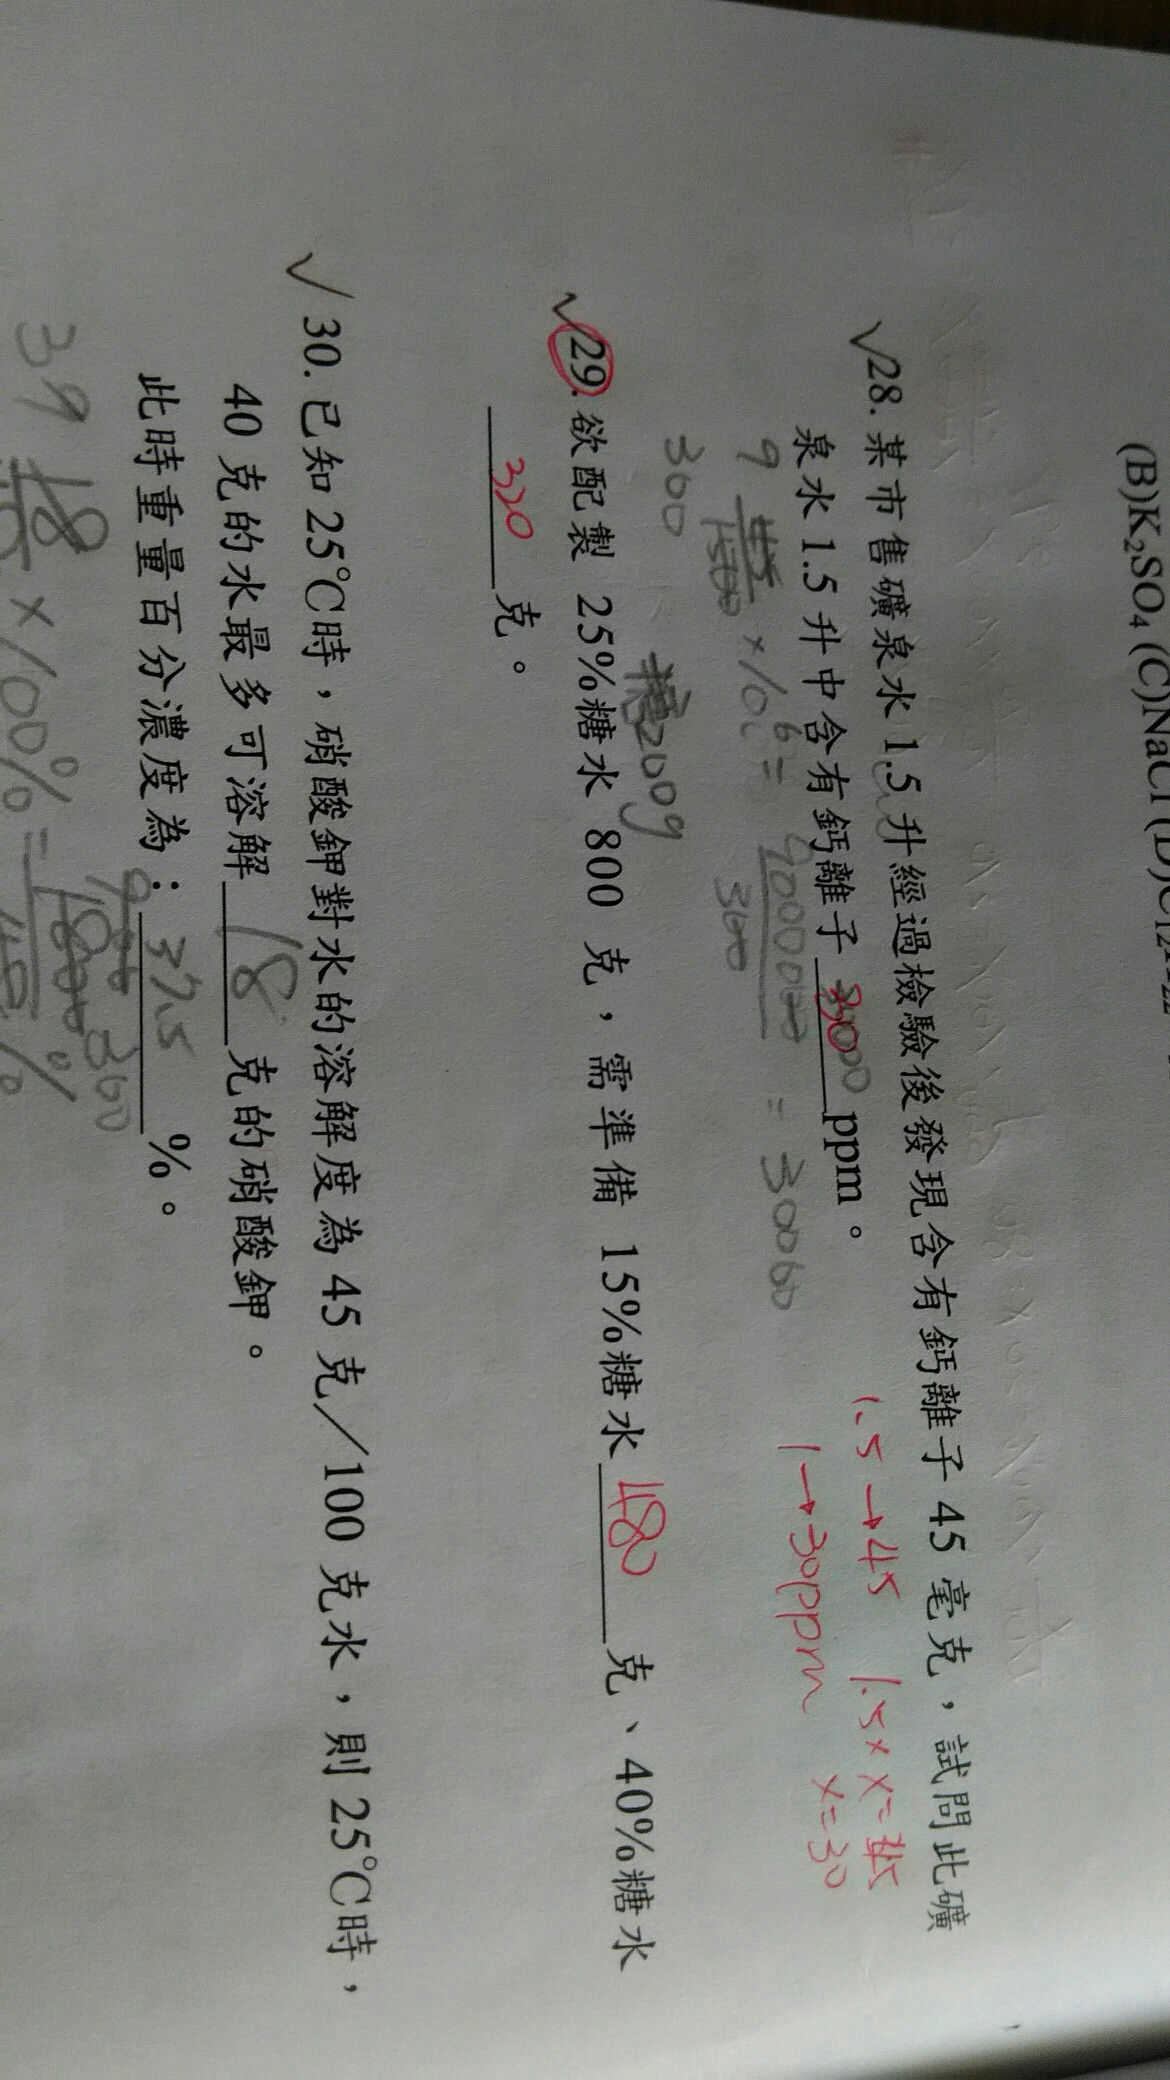 (B)K₂SO₄ (C)NaCl (D)C₁₂
√28. 某市售礦泉水 1.5 升經過檢驗後發現含有鈣離子 45 毫克，試問此礦
泉水 1.5 升中含有鈣離子 30 ppm。
1.5→45 1.5×X=45
1→30ppm X=30
9 ×10⁶= = 30000
300
√29. 欲配製 25%糖水 800 克，需準備 15%糖水 480 克、40%糖水
320 克。
糖200g
√30. 已知 25℃時，硝酸鉀對水的溶解度為 45 克／100 克水，則 25℃時，
40 克的水最多可溶解 18 克的硝酸鉀。
此時重量百分濃度為： 37.5 %。
39 18 ×100% =